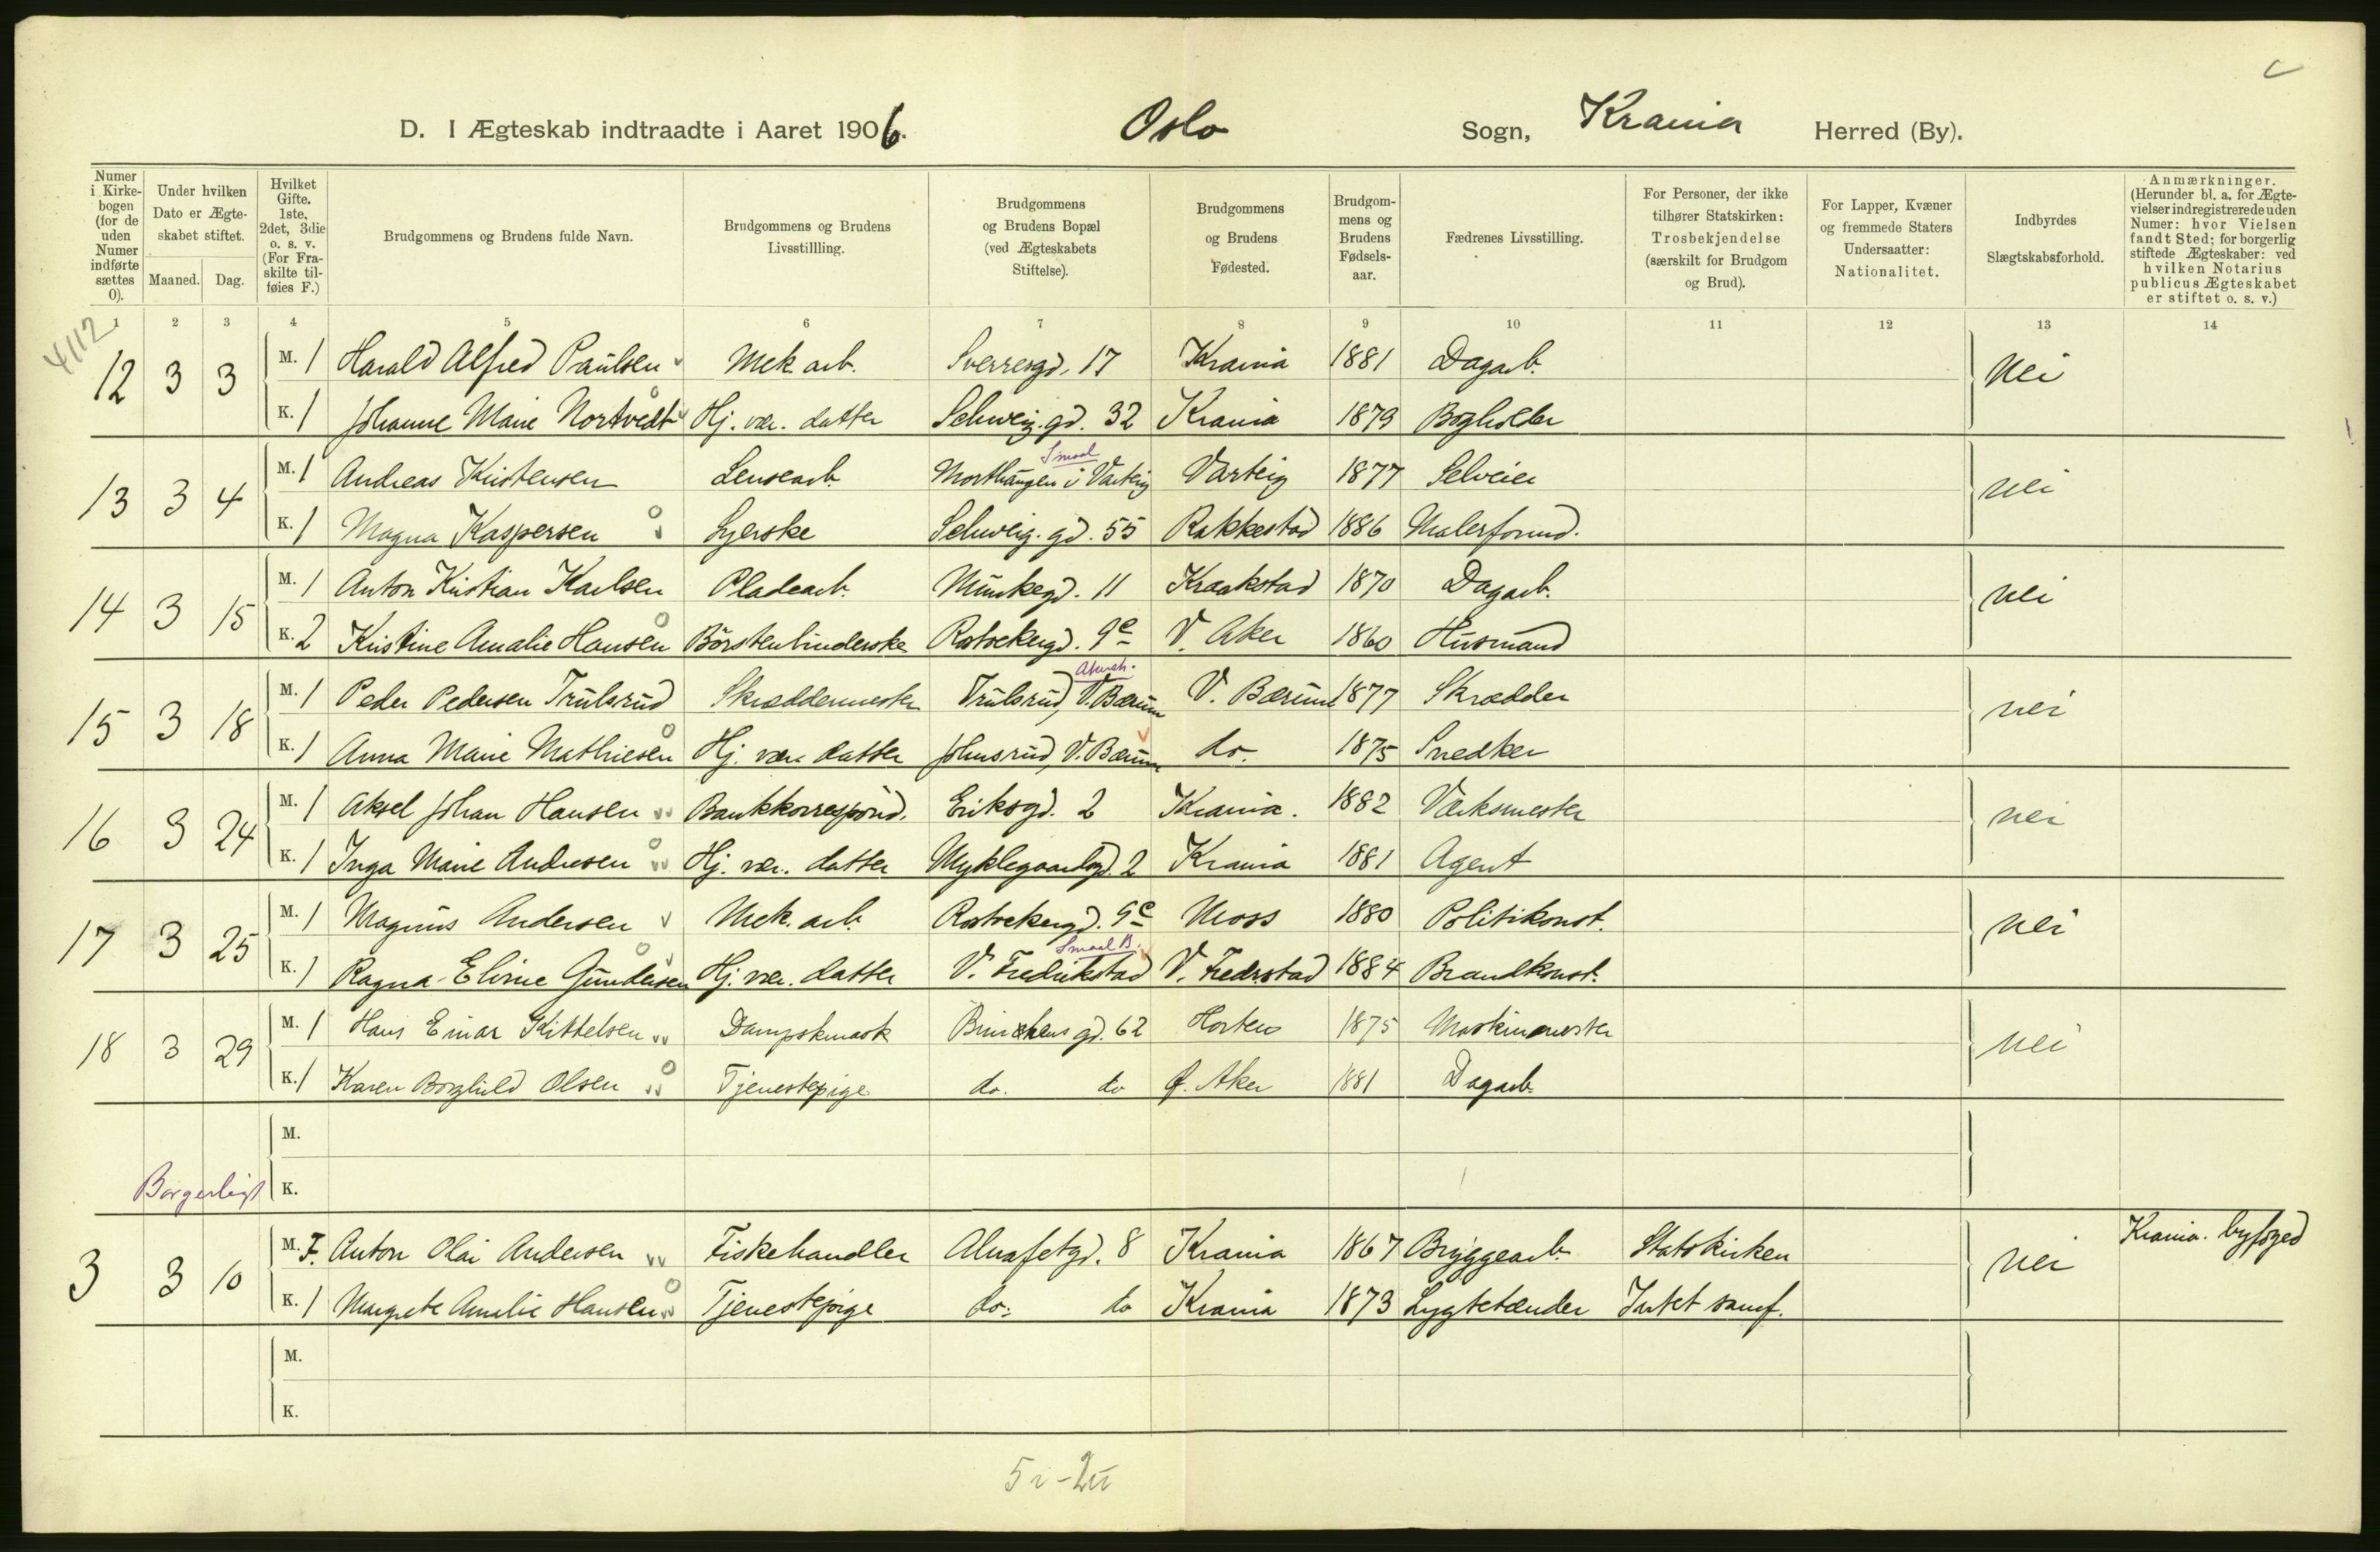 D. I Ægteskab indtraadte i Aaret 1906. Oslo Sogn, Krania Herred (By).
Numer i Kirkebogen (for de uden Numer indførte sættes 0).
Under hvilken Dato er Ægteskabet stiftet.
Maaned. Dag.
Hvilket Gifte. 1ste, 2det, 3die o. s. v. (For Fraskilte tilføies F.)
Brudgommens og Brudens fulde Navn.
Brudgommens og Brudens Livsstillling.
Brudgommens og Brudens Bopæl (ved Ægteskabets Stiftelse).
Brudgommens og Brudens Fødested.
Brudgommens og Brudens Fødselsaar.
Fædrenes Livsstilling.
For Personer, der ikke tilhører Statskirken: Trosbekjendelse (særskilt for Brudgom og Brud).
For Lapper, Kvæner og fremmede Staters Undersaatter: Nationalitet.
Indbyrdes Slægtskabsforhold.
Anmærkninger. (Herunder bl. a. for Ægtevielser indregistrerede uden Numer: hvor Vielsen fandt Sted; for borgerlig stiftede Ægteskaber: ved hvilken Notarius publicus Ægteskabet er stiftet o. s. v.)
1 2 3 4 5 6 7 8 9 10 11 12 13 14
4/112
12 3 3 M. 1 Harald Alfred Paulsen Mek. arb. Sverresgd. 17 Krania 1881 Dagarb. Nei
K. 1 Johanne Marie Nortvedt Hj. vær. datter Schweig. gd. 32 Krania 1879 Bogholder
Smaal
13 3 4 M. 1 Andreas Kristensen Lensearb. i Varteig Varteig 1877 Selveier nei
K. 1 Magna Kaspersen Syerske Schweig. gd. 55 Rakkestad 1886 Malerformd.
14 3 15 M. 1 Anton Kristian Karlsen Pladearb. Munkegd. 11 Kraakstad 1870 Dagarb. nei
K. 2 Kristine Amalie Hansen Børstenbinderske Rostockergd. 9c V. Aker 1860 Husmand
Akersh.
15 3 18 M. 1 Peder Pedersen Trulsrud Skræddermester Trulsrud, V. Bærum V. Bærum 1877 Skrædder nei
K. 1 Anna Marie Mathiesen Hj. vær. datter Johnsrud, V. Bærum do. 1875 Snedker
16 3 24 M. 1 Aksel Johan Hansen Bankkorrespond. Eriksgd. 2 Krania. 1882 Værksmester nei
K. 1 Inga Marie Andresen Hj. vær. datter Myklegaardsgd. 2 Krania 1881 Agent
17 3 25 M. 1 Magnus Andersen Mek. arb. Rostockergd. 9c Moss 1880 Politikonst. nei
Smaal B.
K. 1 Ragna Elvine Gundersen Hj. vær. datter V. Fredrikstad V. Fredrstad 1884 Brandkonst.
18 3 29 M. 1 Hans Einar Kittelsen Dampskmask Brinchens gd. 62 Horten 1875 Maskinmester nei
K. 1 Karen Borghild Olsen Tjenestepige do. do Ø. Aker 1881 Dagarb.
M.
Borgerligt K.
3 3 10 M. F. Anton Olai Andersen Fiskehandler Alnafetgd. 8 Krania 1867 Bryggearb. Statskirken nei Krania. byfoged
K. 1 Margrete Amalie Hansen Tjenestepige do. do Krania 1873 Lygtetænder Intet samf.
M.
K.